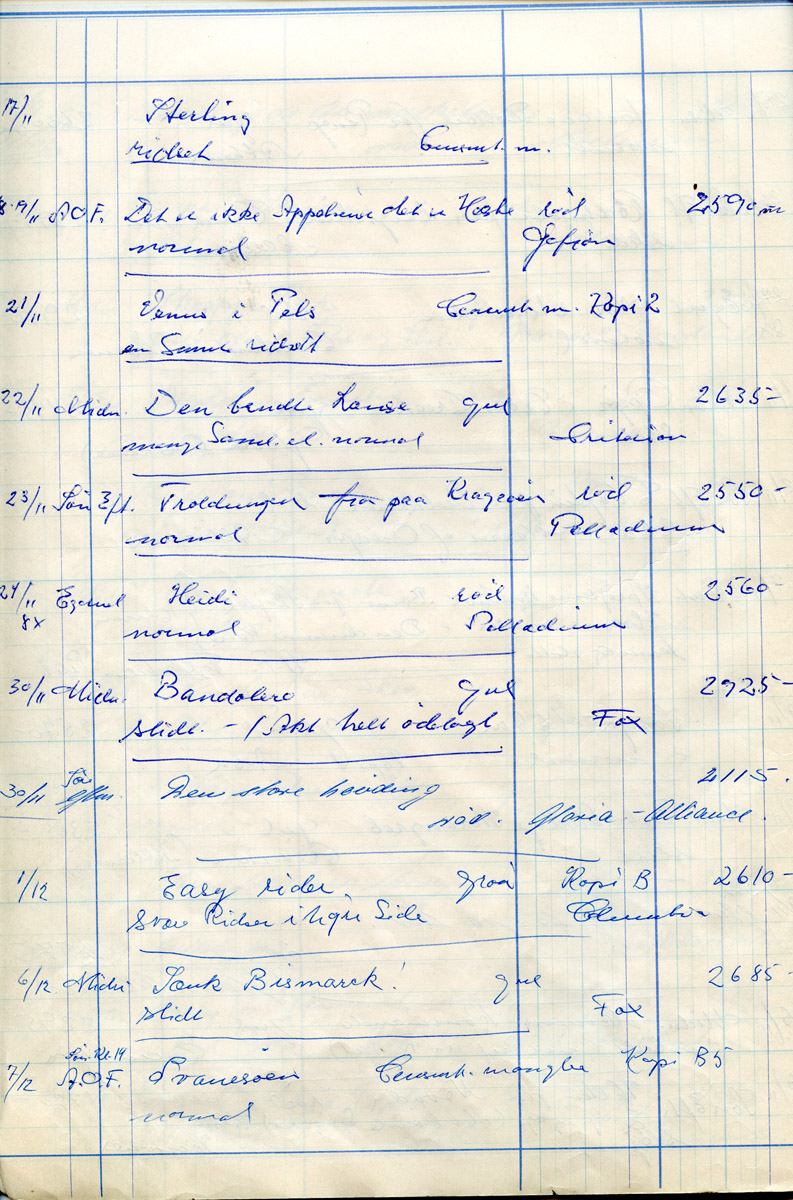 17/11 Sterling
ridset Censurk. m.
8-19/11 A.O.F. Det er ikke Appelsiner det er Heste röd 2590 m
normal Jafiön
21/11 Venus i Pels Censurk m. Kopi 2
en Smule ridset
22/11 Midn. Den bendte Lanse gul 2635-
mange Saml. el. normal Criterion
23/11 Søn Eft. Troldungen fra paa Kragerøen röd 2550-
normal Palladium
24/11 Heidi röd 2560-
8x normal Palladium
30/11 Midn. Bandolero gul 2925-
slidt - 1 Akt helt ödelagt Fox
30/11 Søn Eftm. Den store høvding 2115.
röd. Gloria-Alliance.
1/12 Easy rider. graa Kopi B 2610-
svær Ridser i højre Side Columbia
6/12 Midn Sænk Bismarck! gul 2685-
slidt Fox
Søn. Kl. 14
7/12 A.O.F. Svanesøen Censurk. mangler Kopi B5
normal